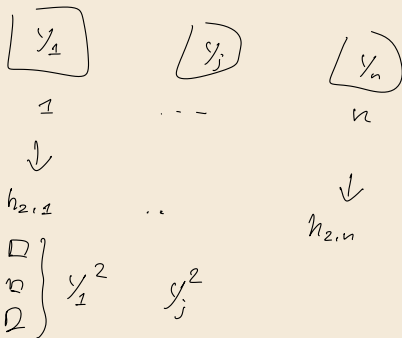 y_1 y_j y_n
1 ... n
↓ ↓
h_{2,1} .. h_{2,n}
y_1^2 y_j^2